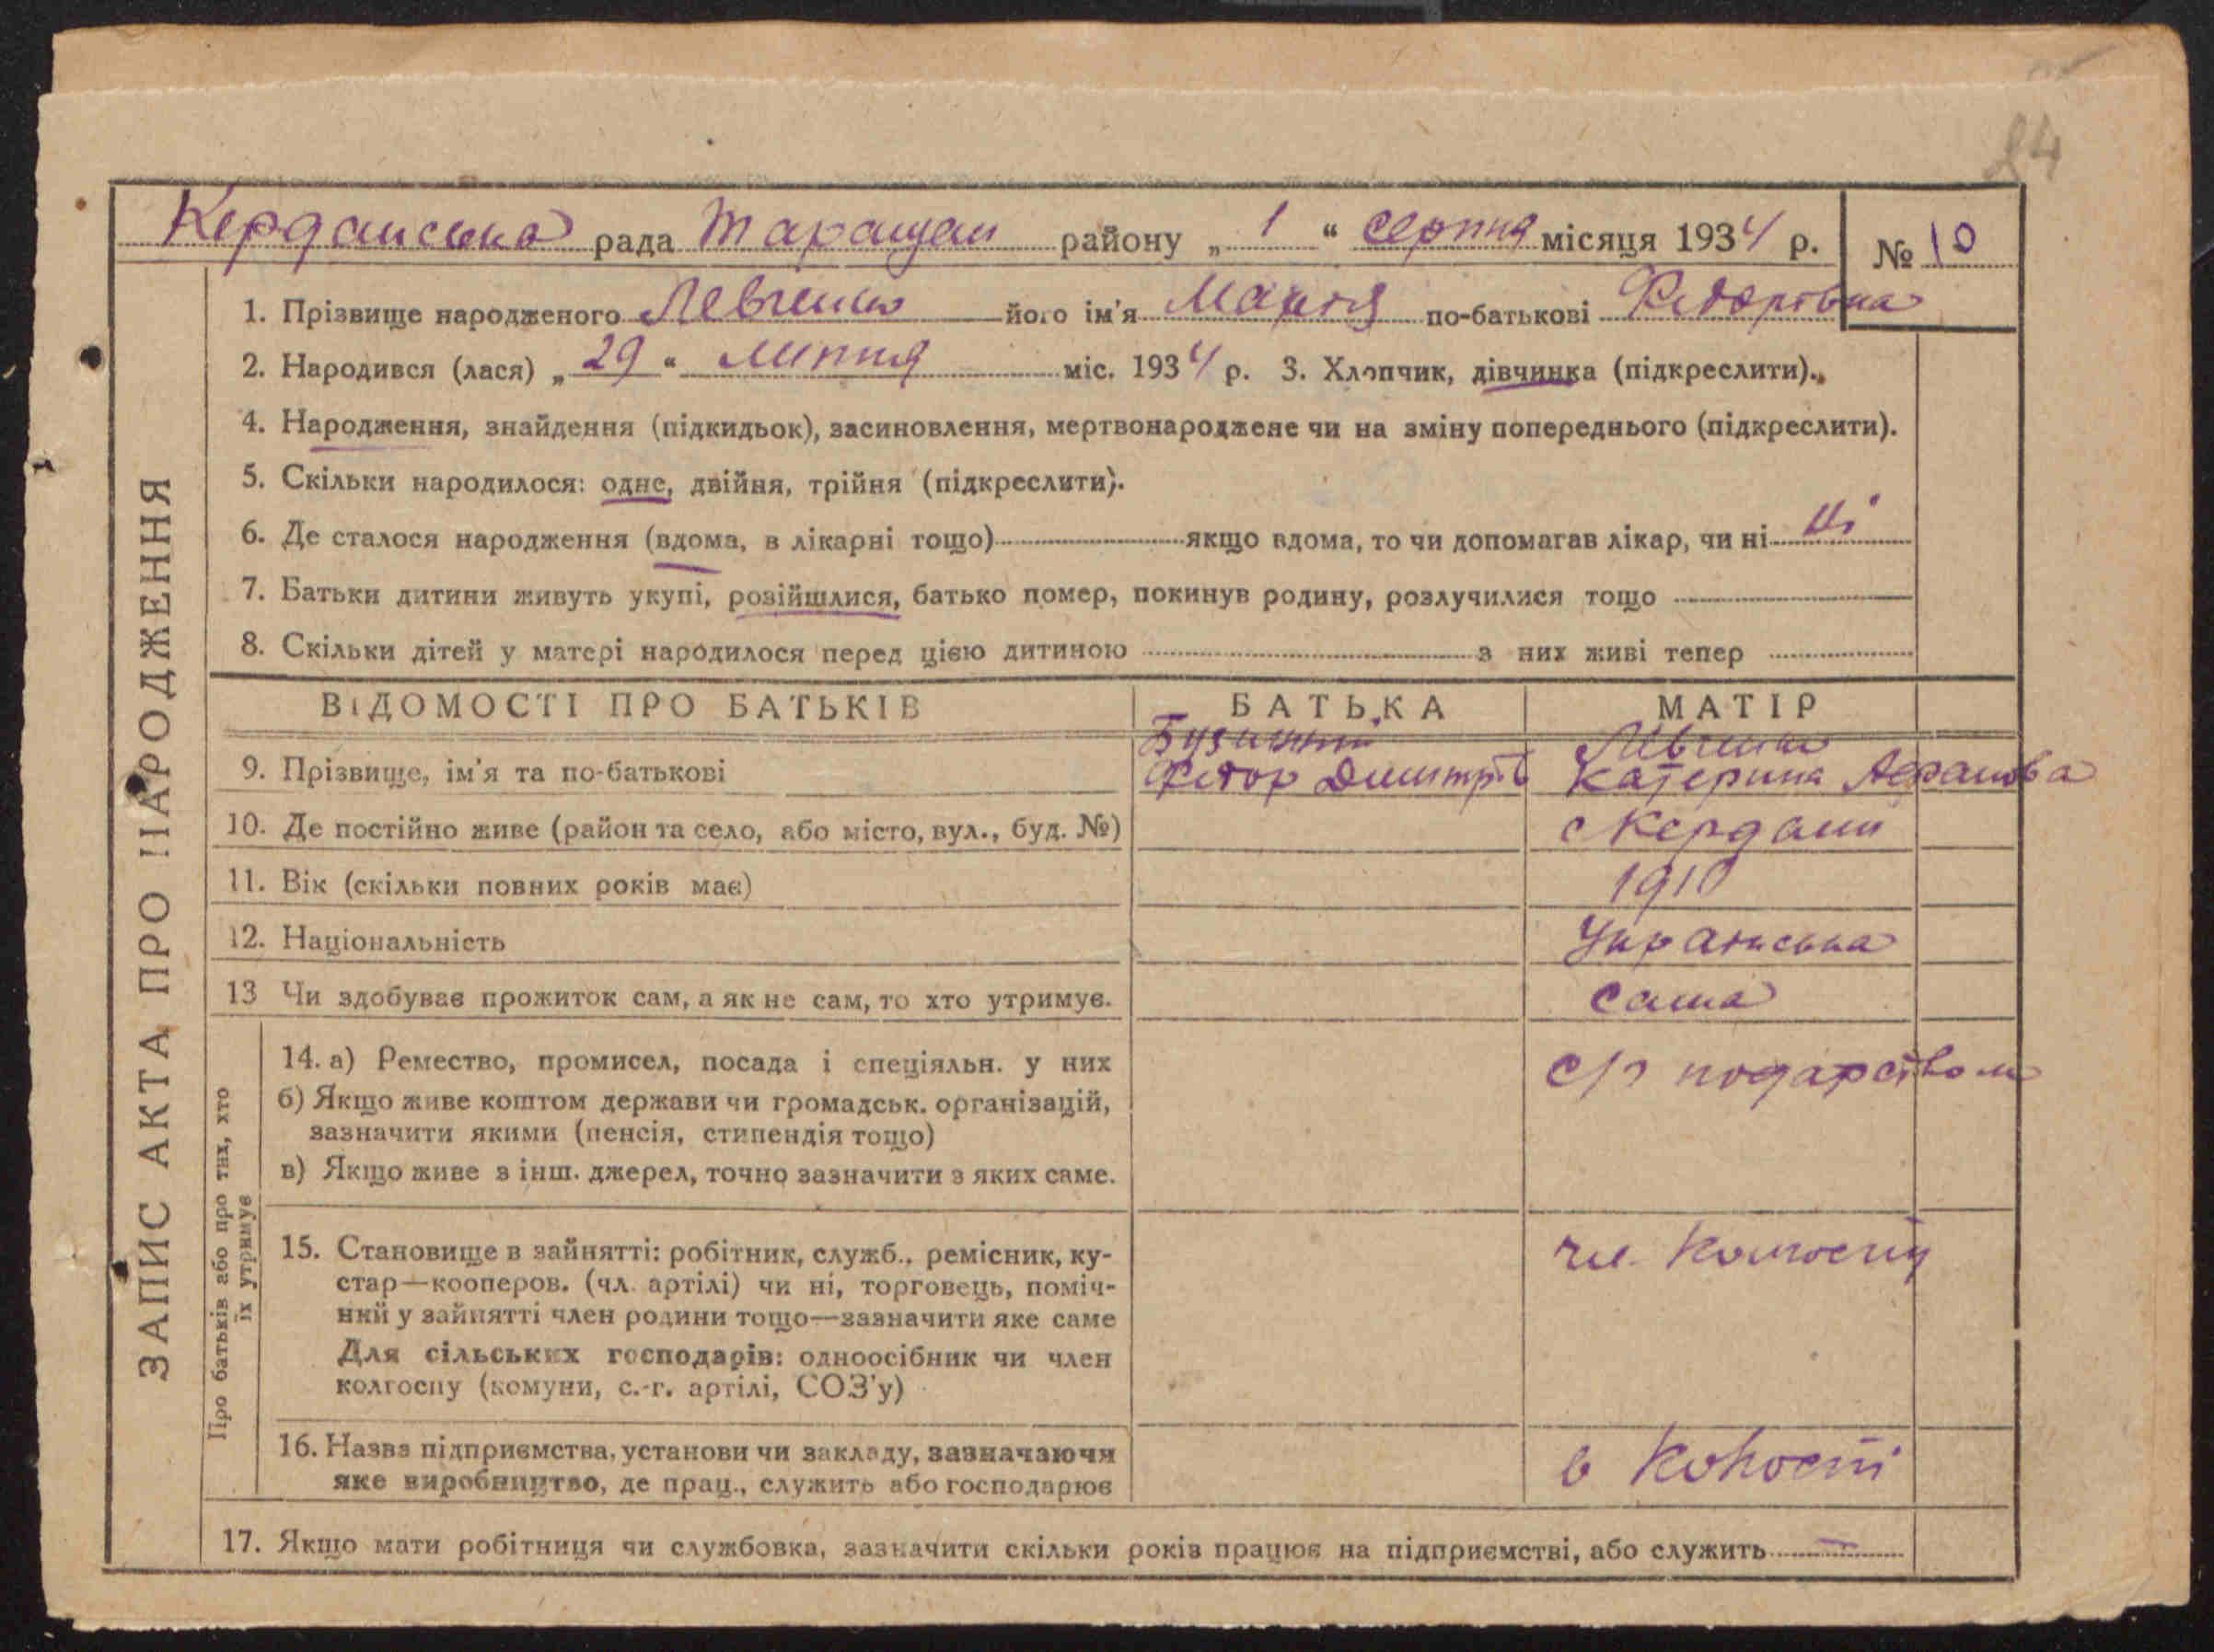 84
Керданська рада Таращан району „ 1 “ серпня місяця 1934 р. № 10
ЗАПИС АКТА ПРО НАРОДЖЕННЯ
1. Прізвище народженого Левченко його ім'я Марія по-батькові Федорівна
2. Народився (лася) „ 29 “ липня міс. 1934 р. 3. Хлопчик, дівчинка (підкреслити).
4. Народження, знайдення (підкидьок), засиновлення, мертвонароджене чи на зміну попереднього (підкреслити).
5. Скільки народилося: одне, двійня, трійня (підкреслити).
6. Де сталося народження (вдома, в лікарні тощо) якщо вдома, то чи допомагав лікар, чи ні ні
7. Батьки дитини живуть укупі, розійшлися, батько помер, покинув родину, розлучилися тощо
8. Скільки дітей у матері народилося перед цією дитиною з них живі тепер
ВІДОМОСТІ ПРО БАТЬКІВ БАТЬКА МАТІР
Левченко
9. Прізвище, ім'я та по-батькові Федор Дмитрів Катерина
10. Де постійно живе (район та село, або місто, вул., буд. №) с Кердани
11. Вік (скільки повних років має) 1910
12. Національність Українська
13 Чи здобуває прожиток сам, а як не сам, то хто утримує. сама
Про батьків або про тих, хто
їх утримує
14. а) Ремество, промисел, посада і спеціяльн. у них с/г подарством
б) Якщо живе коштом держави чи громадськ. організацій,
зазначити якими (пенсія, стипендія тощо)
в) Якщо живе з інш. джерел, точно зазначити з яких саме.
15. Становище в зайнятті: робітник, служб., ремісник, ку- чл.
стар—кооперов. (чл. артілі) чи ні, торговець, поміч-
ний у зайнятті член родини тощо—зазначити яке саме
Для сільських господарів: одноосібник чи член
колгоспу (комуни, с.-г. артілі, СОЗ'у)
16. Назва підприємства, установи чи закладу, зазначаючи в
яке виробництво, де прац., служить або господарює
17. Якщо мати робітниця чи службовка, зазначити скільки років працює на підприємстві, або служить —